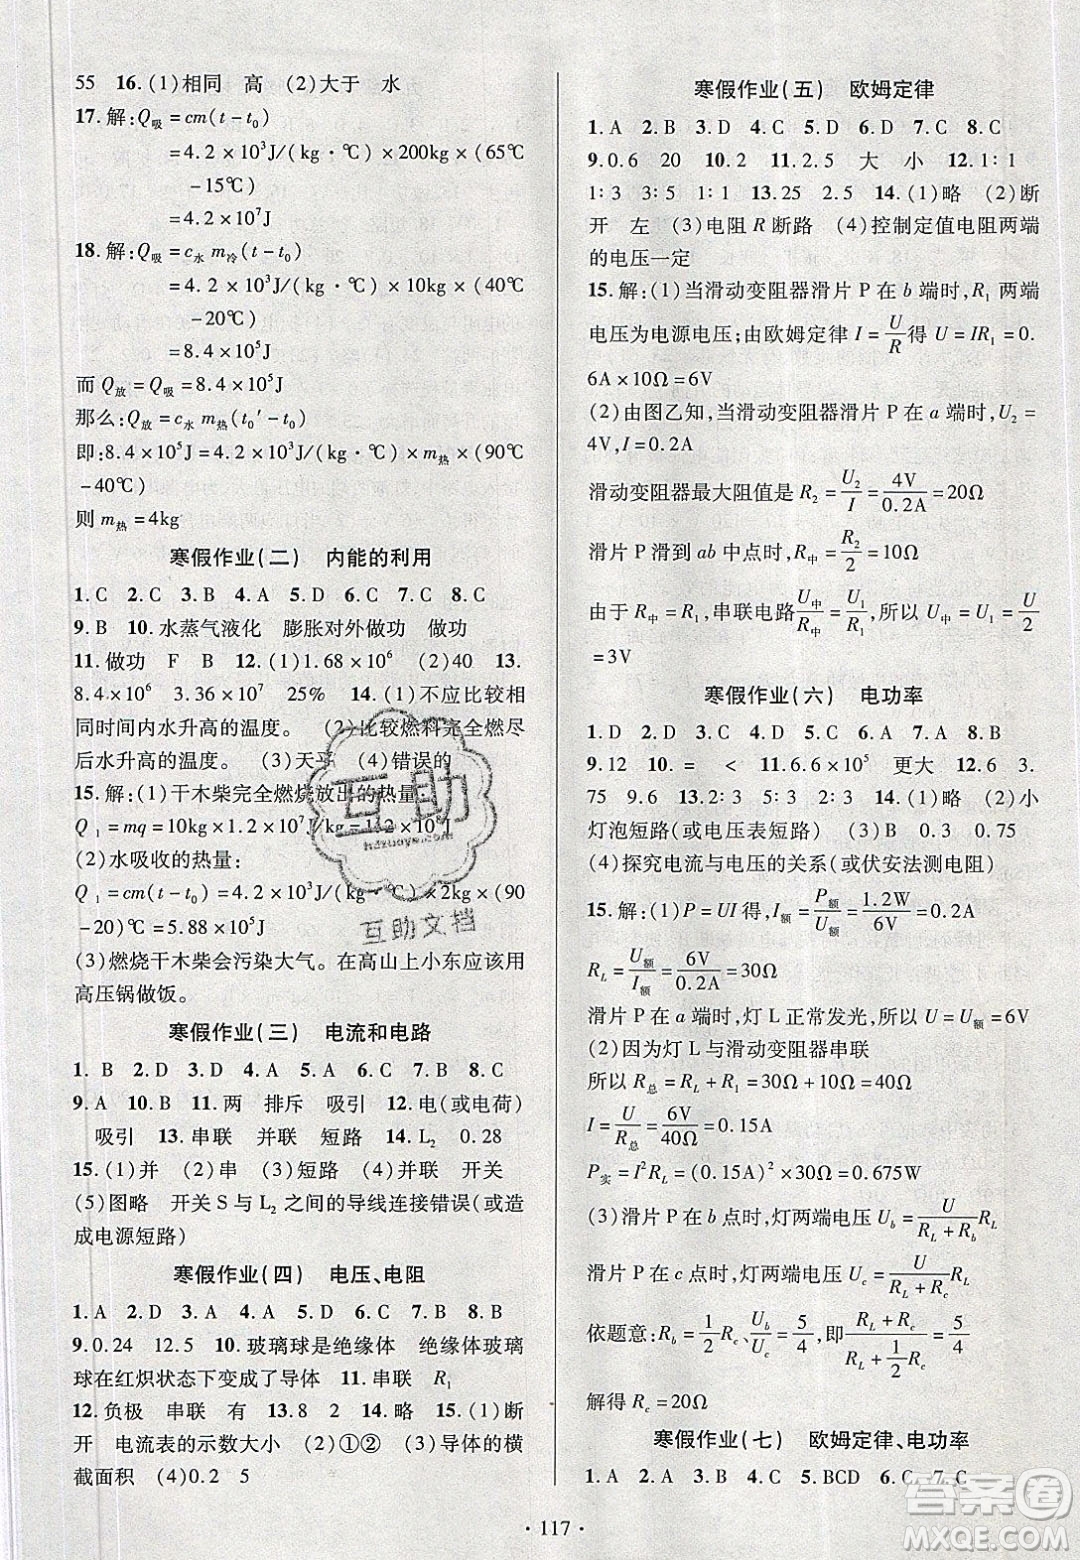 55　16.(1)相同　高　(2)大于　水
17.解:Q吸=cm(t-t₀)
=4.2×10³J/(kg·℃)×200kg×(65℃
-15℃)
=4.2×10⁷J
18.解:Q吸=c水 m冷(t-t₀)
=4.2×10³J/(kg·℃)×10kg×(40℃
-20℃)
=8.4×10⁵J
而 Q放=Q吸=8.4×10⁵J
那么:Q放=c水 m热(t₀′-t₀)
即:8.4×10⁵J=4.2×10³J×m热×(90℃
-40℃)
则 m热=4kg
寒假作业(二)　内能的利用
1.C　2.C　3.B　4.A　5.D　6.C　7.C　8.C
9.B　10.水蒸气液化　膨胀对外做功　做功
11.做功　F　B　12.(1)1.68×10⁶　(2)40　13.
8.4×10⁶　3×10⁷　25%　14.(1)不应比较相
同时间内水升高的温度。　(2)比较燃料完全燃尽
后水升高的温度。　(3)天平　(4)错误的
15.解:(1)干木柴完全燃烧放出的热量:
Q₁=mq=10kg×1.2×10⁷J/kg=1.2×10⁸J
(2)水吸收的热量:
Q₁=cm(t-t₀)=4.2×10³J/(kg·℃)×2kg×(90
-20)℃=5.88×10⁵J
(3)燃烧干木柴会污染大气。在高山上小东应该用
高压锅做饭。
寒假作业(三)　电流和电路
1. B　2.D　3.C　4.D　5.A　6.D　7.D　8.C
9.A　10.B　11.两　排斥　吸引　12.电(或电荷)
吸引　13.串联　并联　短路　14.L₂　0.28
15.(1)并　(2)串　(3)短路　(4)并联　开关
(5)图略　开关 S 与 L₂ 之间的导线连接错误(或造
成电源短路)
寒假作业(四)　电压、电阻
1.A　2.D　3.A　4.A　5.D　6.C　7.B　8.B
9.0.24　12.5　10.玻璃球是绝缘体　绝缘体玻璃
球在红炽状态下变成了导体　11.串联　R₁
12.负极　串联　有　13.8　2　14.略　15.(1)断
开　电流表的示数大小　(2)①②　(3)导体的横
截面积　(4)0.2　5
寒假作业(五)　欧姆定律
1.A　2.B　3.D　4.C　5.D　6.D　7.C　8.C
9.0.6　20　10.2　11.2.5　大　小　12.1∶1
1∶3　3∶5　1∶1　13.25　2.5　14.(1)略　(2)断
开　左　(3)电阻 R 断路　(4)控制定值电阻两端
的电压一定
15.解:(1)当滑动变阻器滑片 P 在 b 端时,R₁ 两端
电压为电源电压;由欧姆定律 I=U/R得 U=IR₁=0.
6A×10Ω=6V
(2)由图乙知,当滑动变阻器滑片 P 在 a 端时,U₂=
4V,I=0.2A
滑动变阻器最大阻值是 R₂=U₂/I=4V/0.2A=20Ω
滑片 P 滑到 ab 中点时,R中=R₂/2=10Ω
由于 R中=R₁,串联电路U中/R中=U₁/R₁,所以 U中=U₁=U/2
=3V
寒假作业(六)　电功率
1.D　2.D　3.A　4.C　5.D　6.A　7.A　8.D
9.12　10.=　<　11.6.6×10⁵　更大　12.6　3.
75　9.6　13.2∶3　5∶3　2∶5　14.(1)略　(2)小
灯泡短路(或电压表短路)　(3)B　0.3　0.75
(4)探究电流与电压的关系(或伏安法测电阻)
15.解:(1)P=UI得,I额=P额/U额=1.2W/6V=0.2A
R_L=U额/I额=6V/0.2A=30Ω
滑片 P 在 a 端时,灯 L 正常发光,所以 U=U额=6V
(2)因为灯 L 与滑动变阻器串联
所以 R总=R_L+R₁=30Ω+10Ω=40Ω
I=U/R总=6V/40Ω=0.15A
P实=I²R_L=(0.15A)²×30Ω=0.675W
(3)滑片 P 在 b 点时,灯两端电压 U_b=U/(R_L+R_b)R_L
滑片 P 在 c 点时,灯两端电压 U_c=U/(R_L+R_c)R_L
依题意:R_b=1/2R_c、U_b/U_c=5/4,即(R_L+R_c)/(R_L+1/2R_c)=5/4
解得 R_c=20Ω
寒假作业(七)　欧姆定律、电功率
1.A　2.A　3.B　4.C　5.BCD　6.C　7.C
· 117 ·
互助
hdzuoye.com
互助文档
答案圈
MXQE.COM